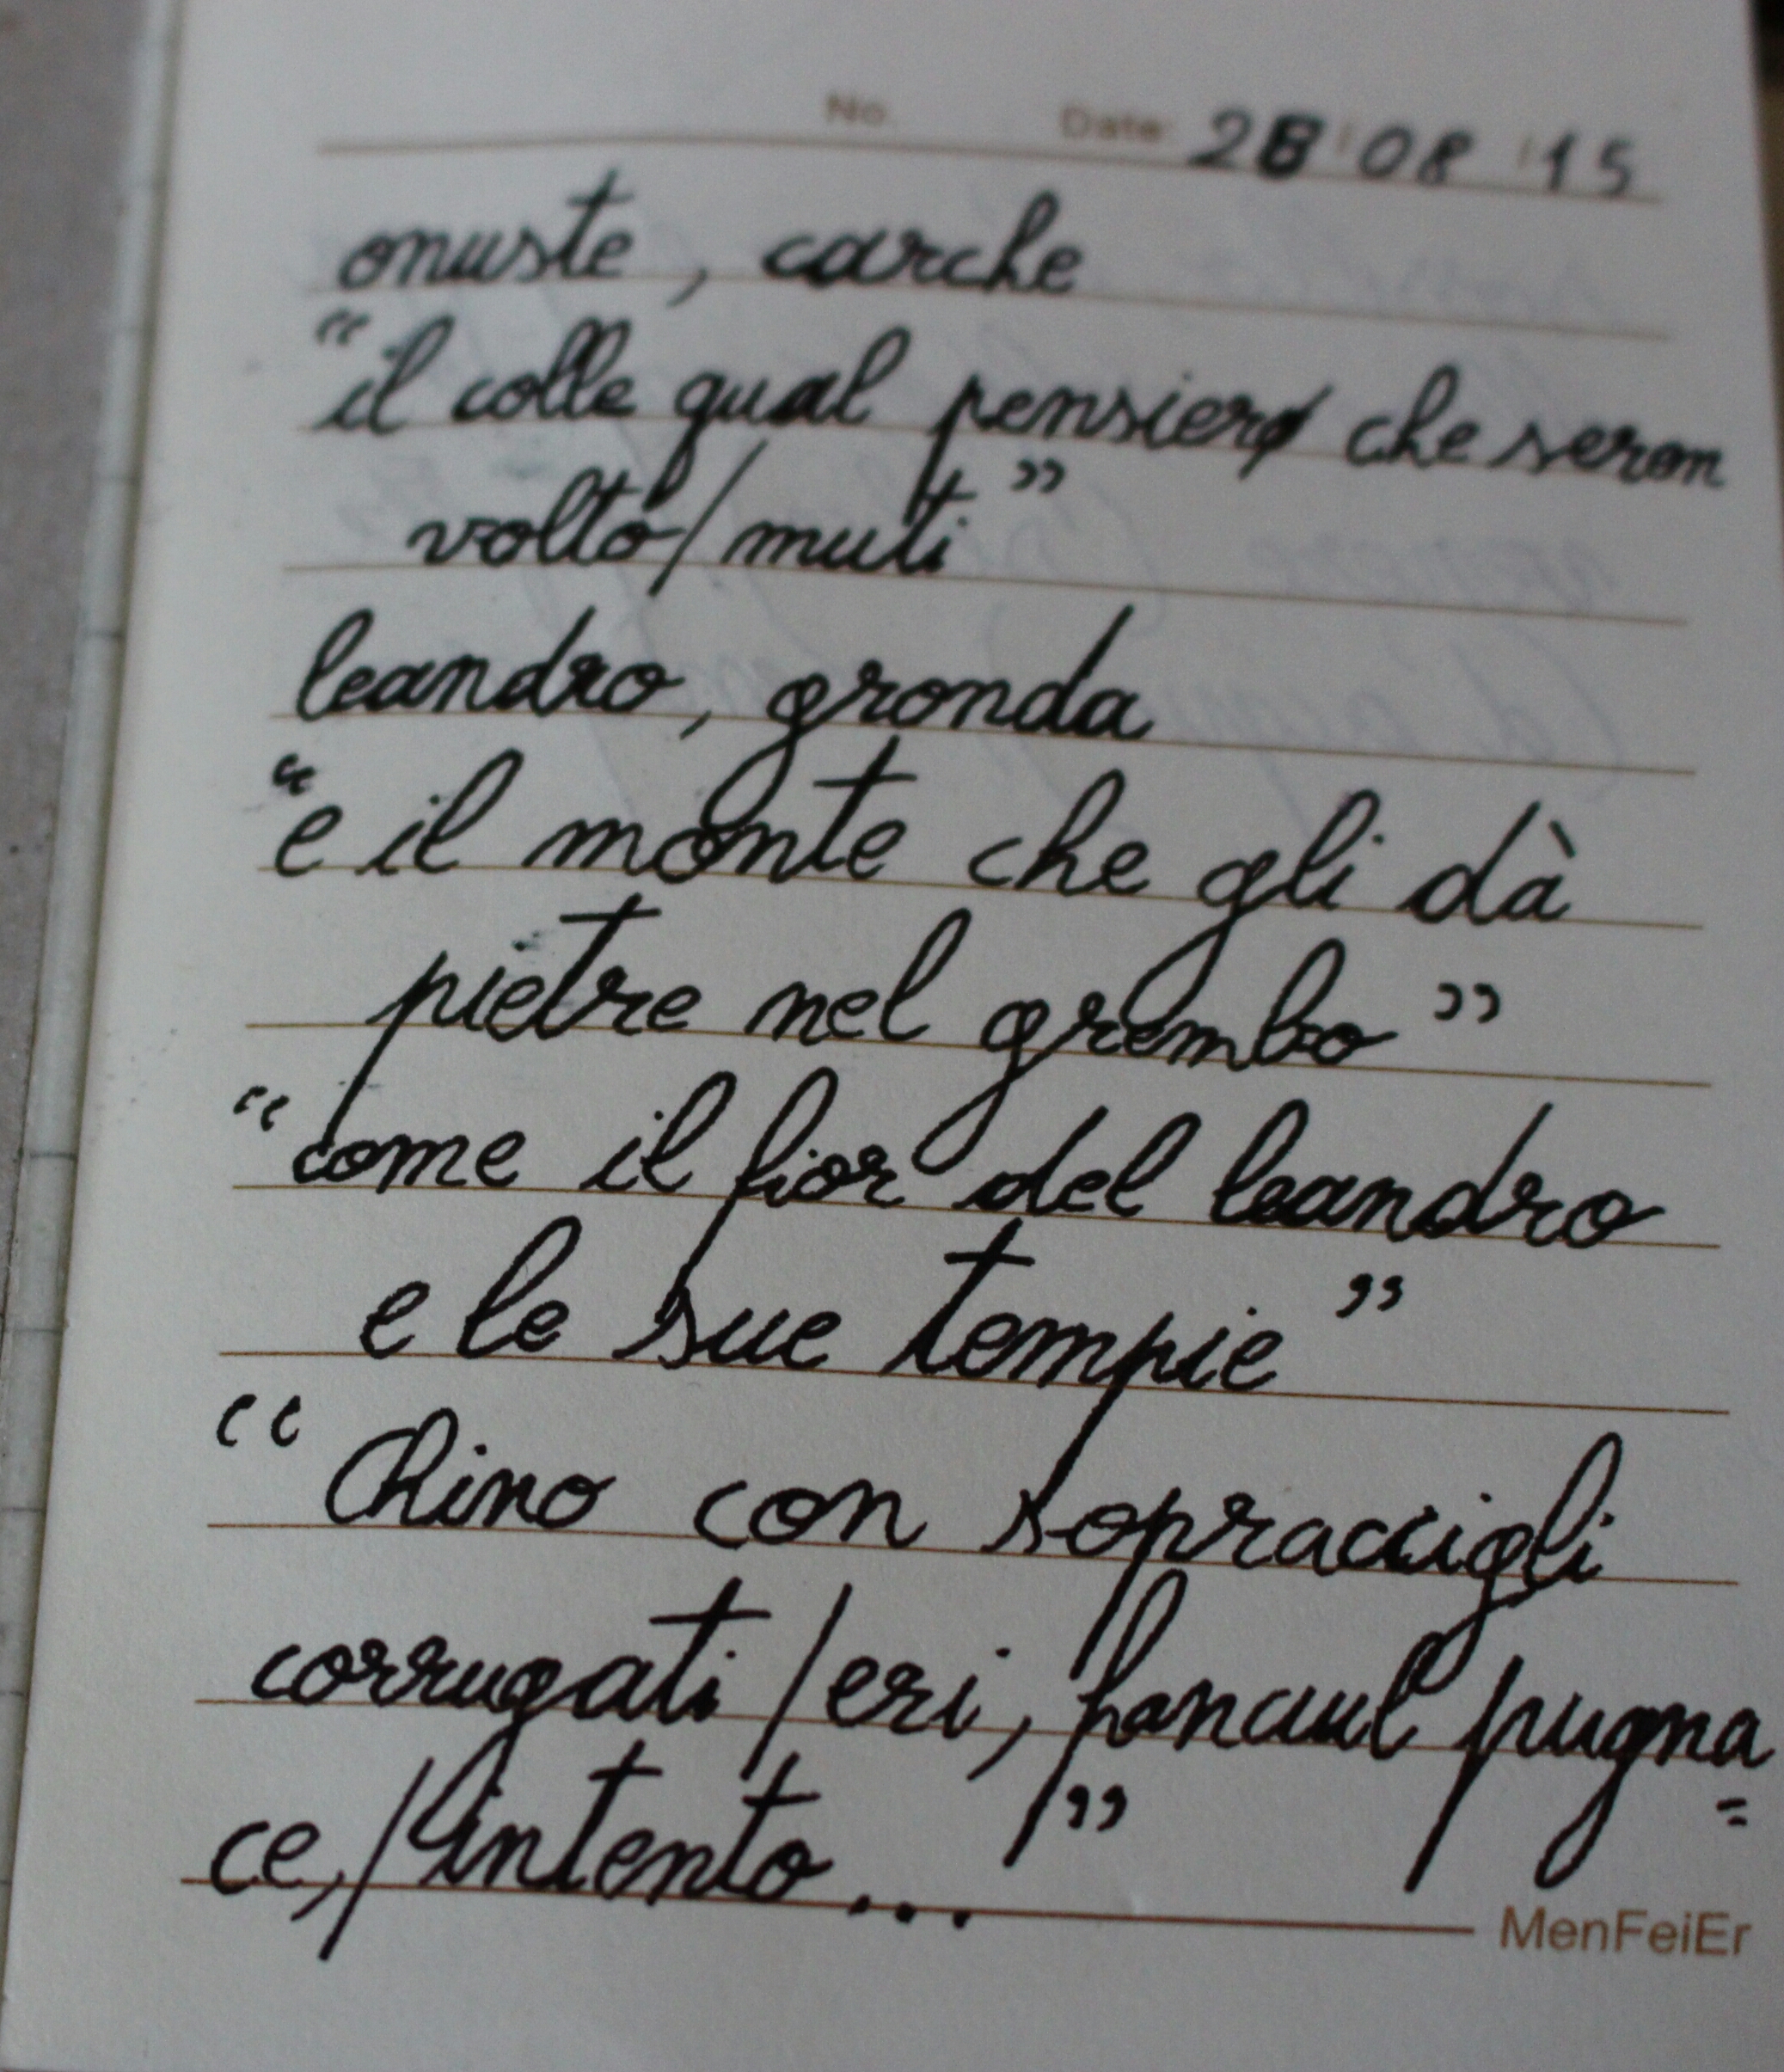 No. Date: 28 08 15
onuste, carche
"il colle qual pensier che serom
volto/muti"
leandro, gronda
"e il monte che gli dà
pietre nel grembo"
"come il fior del leandro
e le sue tempie"
"Chino con sopraccigli
corrugati/eri, fanciul pugna=
ce,/intento..."
MenFeiEr